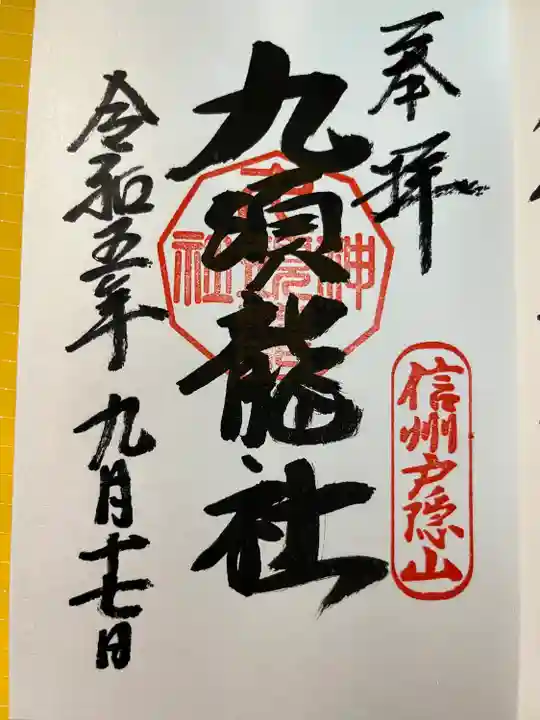 奉拝
信州戸隠山
九頭龍社
令和五年九月十七日